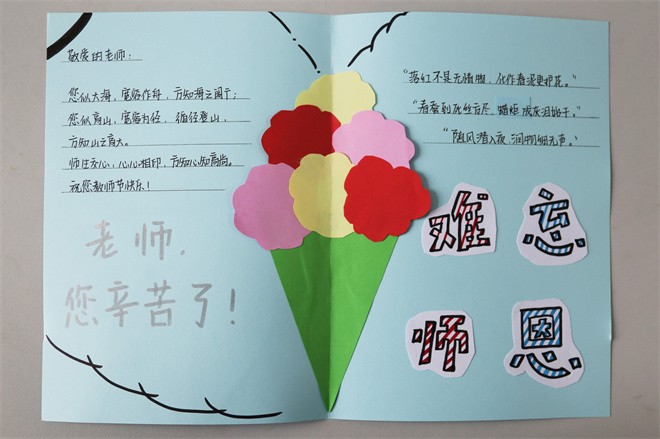 敬爱的老师：
您似大海，宽路作舟，方知海之阔；
您似高山，宽路为径，循径登山，
方知山之高大。
师生交心，心心相印，方知心知高尚。
祝您教师节快乐！
老师，
您辛苦了！
"落红不是无情物，化作春泥更护花。"
"春蚕到死丝方尽，蜡炬成灰泪始干。"
"随风潜入夜，润物细无声。"
难忘
师恩